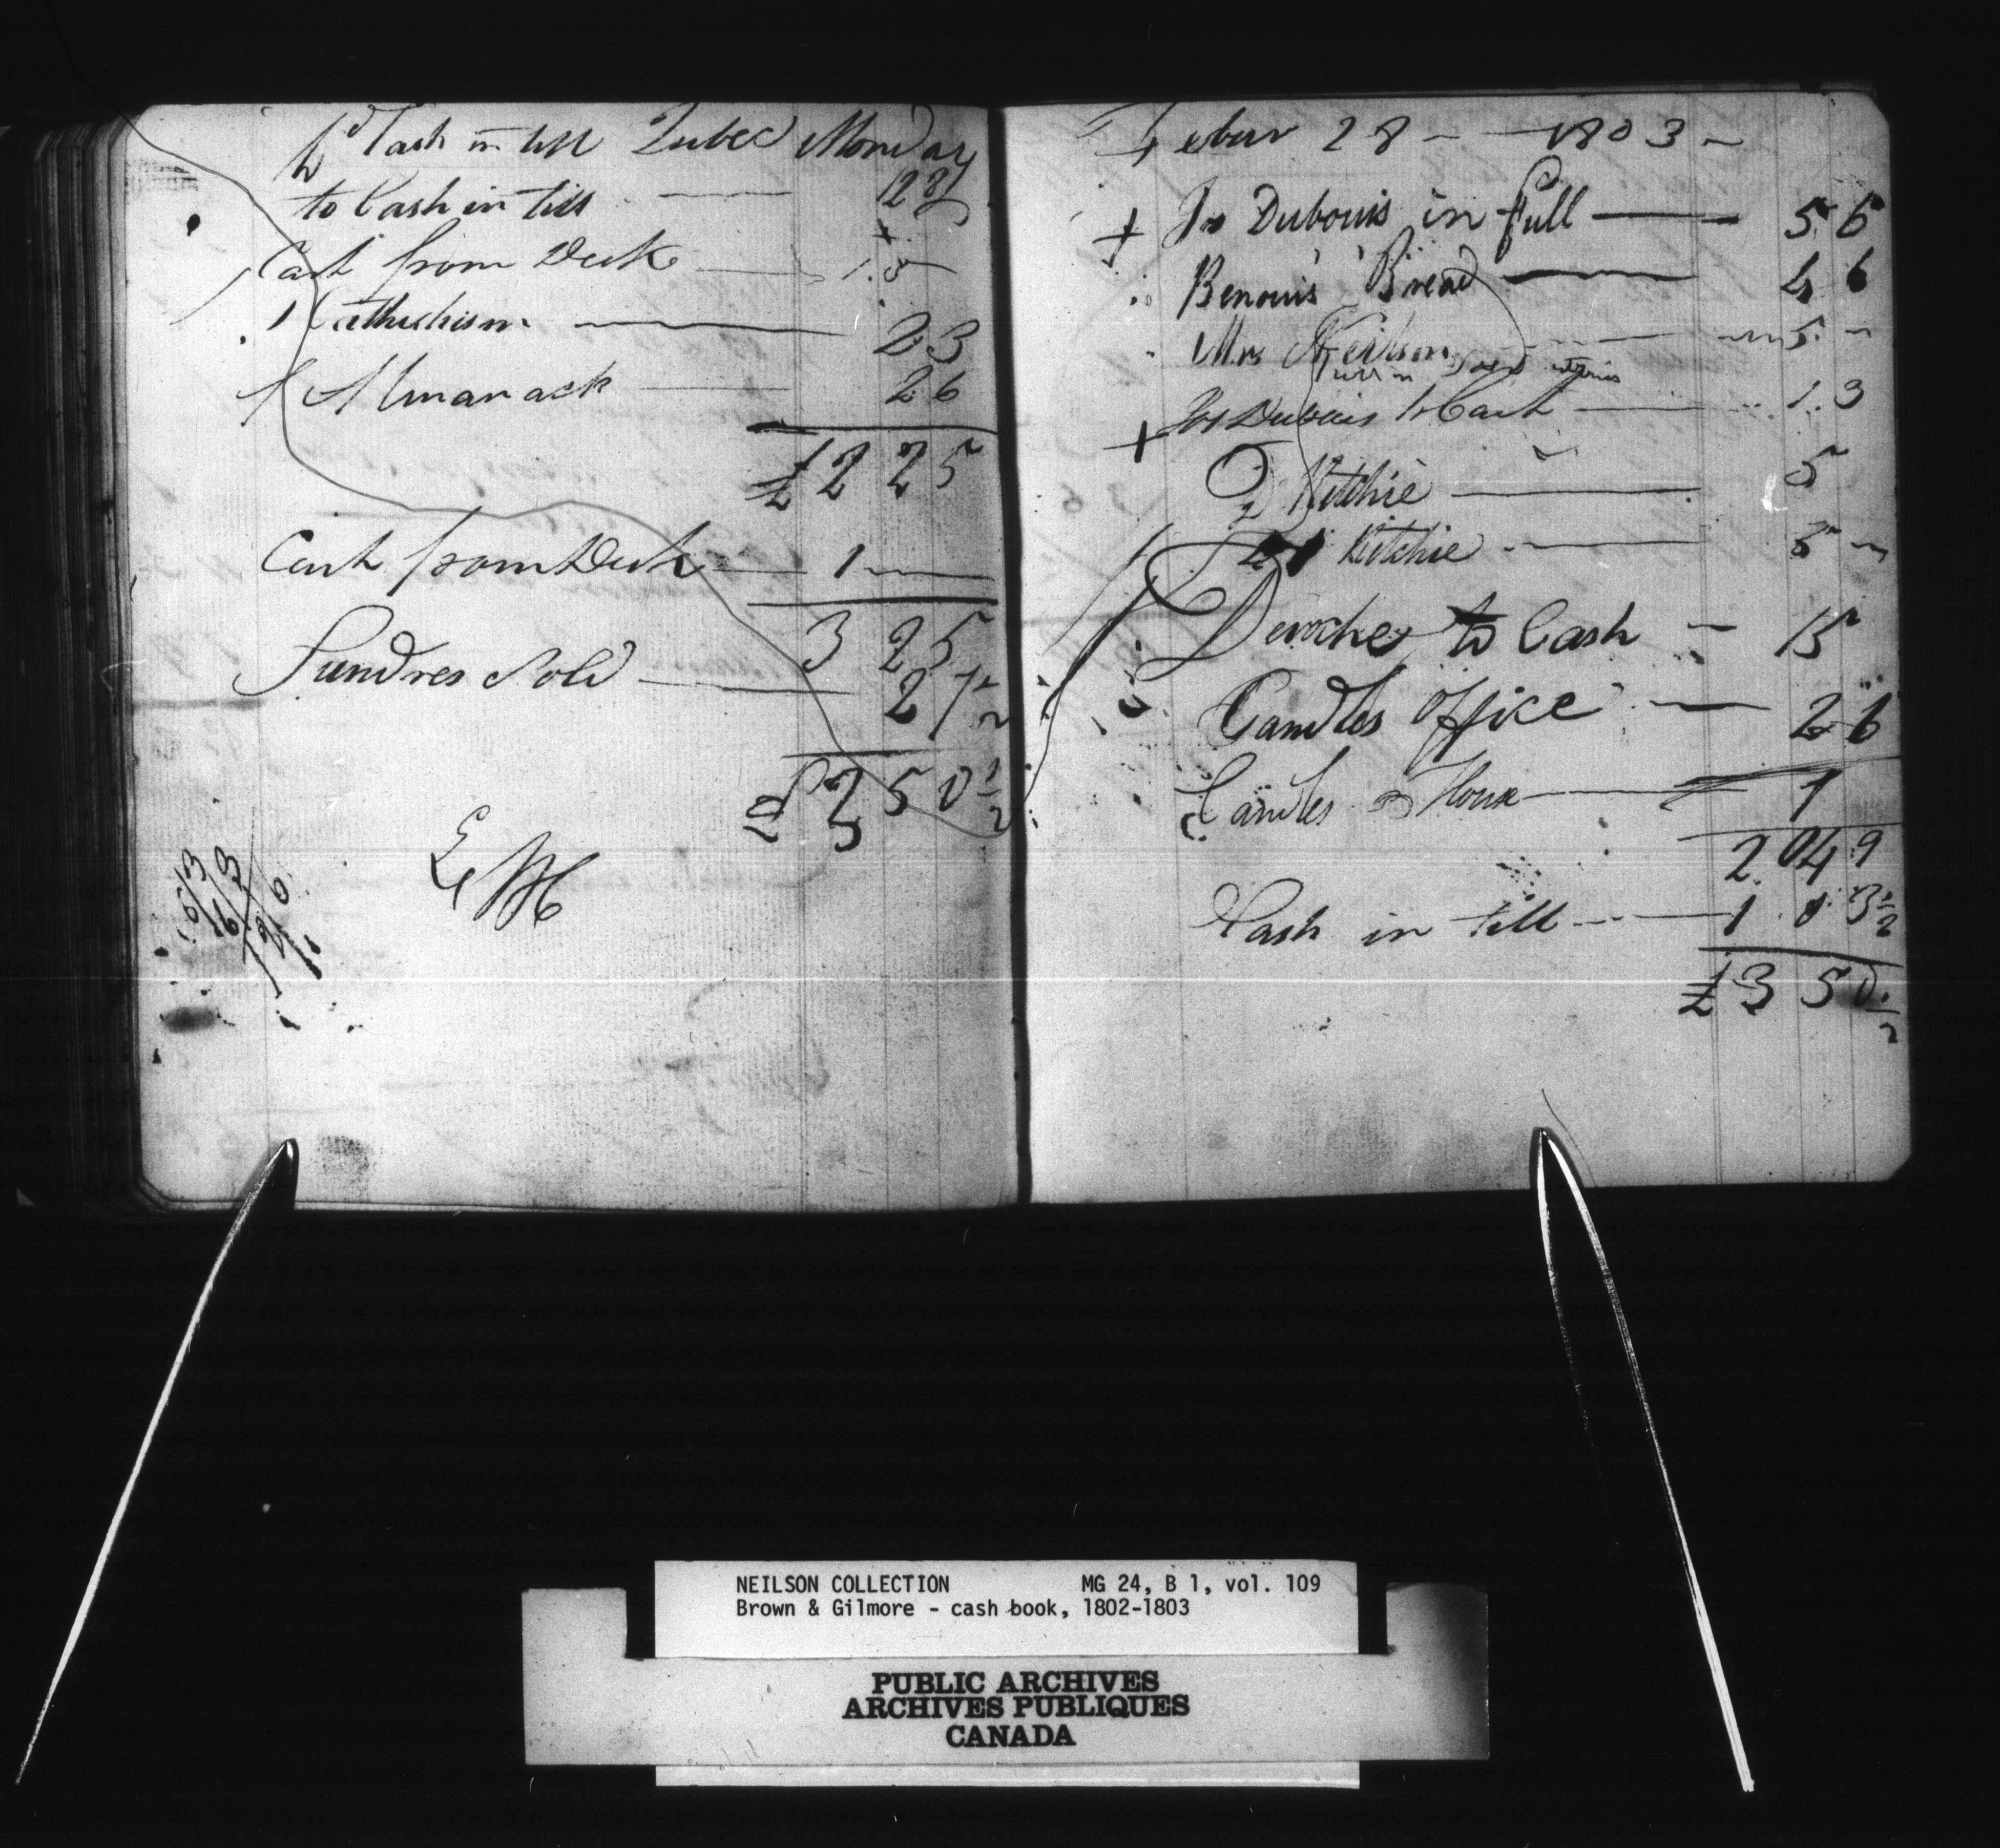 Cash in till Qubec Monday
to Cash in till 12 8½
Cash from Desk 1 3
1 Cathichism 2 3
1 Almanack 2 6
£2 2 5
Cash from Desk 1
3 2 5
Sundres Sold 2 7½
£3 5 0½
Febur 28 - 1803 -
+ Jos Dubouis in full 5 6
Benouis Bread 4 6
Mrs Neilson 5 -
+ Jos Dubouis to Cash 1 3
D Ritchie 5
D Ritchie 5 -
Deroche to Cash - 15
Candles Office - 2 6
Candles House 1
2 04 9
Cash in till 1 0 3½
£3 5 0½
NEILSON COLLECTION MG 24, B 1, vol. 109
Brown & Gilmore - cash book, 1802-1803
PUBLIC ARCHIVES
ARCHIVES PUBLIQUES
CANADA